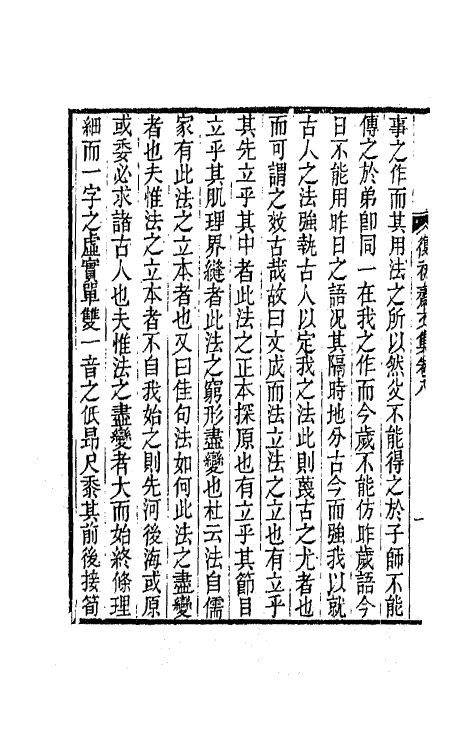 復初齋文集卷八
一
事之作而其用法之所以然父不能得之於子師不能
傳之於弟卽同一在我之作而今歲不能仿昨歲語今
日不能用昨日之語況其隔時地分古今而強我以就
古人之法強執古人以定我之法此則蔑古之尤者也
而可謂之效古哉故曰文成而法立法之立也有立乎
其先立乎其中者此法之正本探原也有立乎其節目
立乎其肌理界縫者此法之窮形盡變也杜云法自儒
家有此法之立本者也又曰佳句法如何此法之盡變
者也夫惟法之立本者不自我始之則先河後海或原
或委必求諸古人也夫惟法之盡變者大而始終條理
細而一字之虛實單雙一音之低昂尺黍其前後接筍